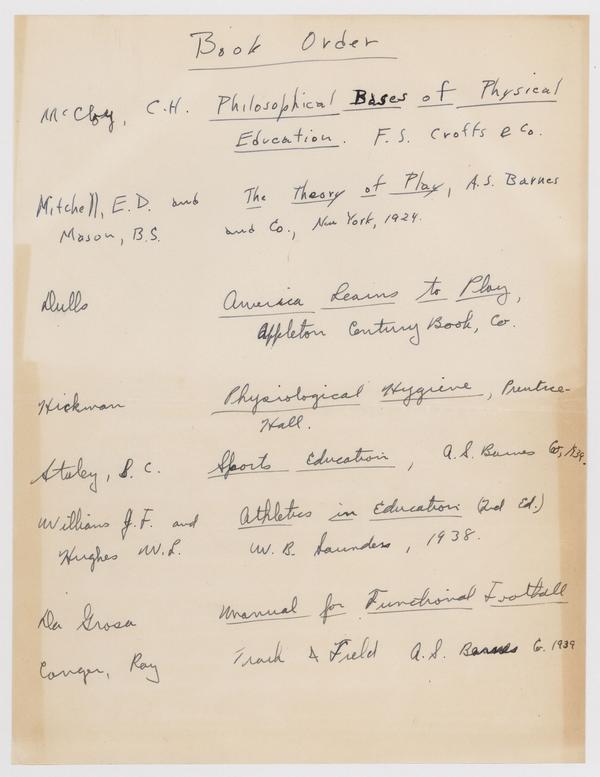 Book Order
McCloy, C.H. Philosophical Bases of Physical
Education. F.S. Crofts & Co.
Mitchell, E.D. and The Theory of Play, A.S. Barnes
Mason, B.S. and Co., New York, 1924.
Dulls America Learns to Play,
Appleton Century Book, Co.
Hickman Physiological Hygiene, Prentice-
Hall.
Staley, S.C. Sports Education, A.S. Barnes Co, 1939.
Williams J.F. and Athletics in Education (2nd Ed.)
Hughes W.L. W.B. Saunders, 1938.
Da Grosa Manual for Functional Football
Conger, Ray Track & Field A.S. Barnes Co. 1939